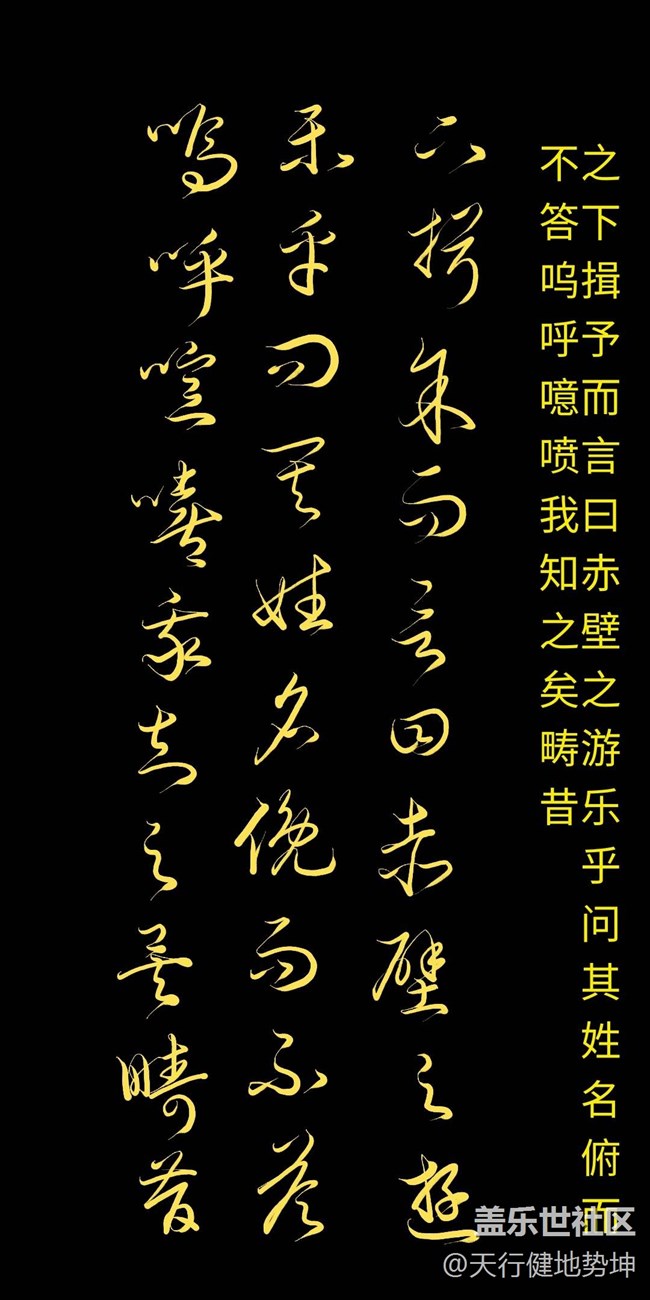 之下揖予而言曰赤壁之游乐乎问其姓名俯而
不答呜呼噫喷我知之矣畴昔
下揖余而言曰赤壁之遊
乐乎问其姓名俛而不答
嗚呼噫嘻我知之矣疇昔
盖乐世社区
@天行健地势坤